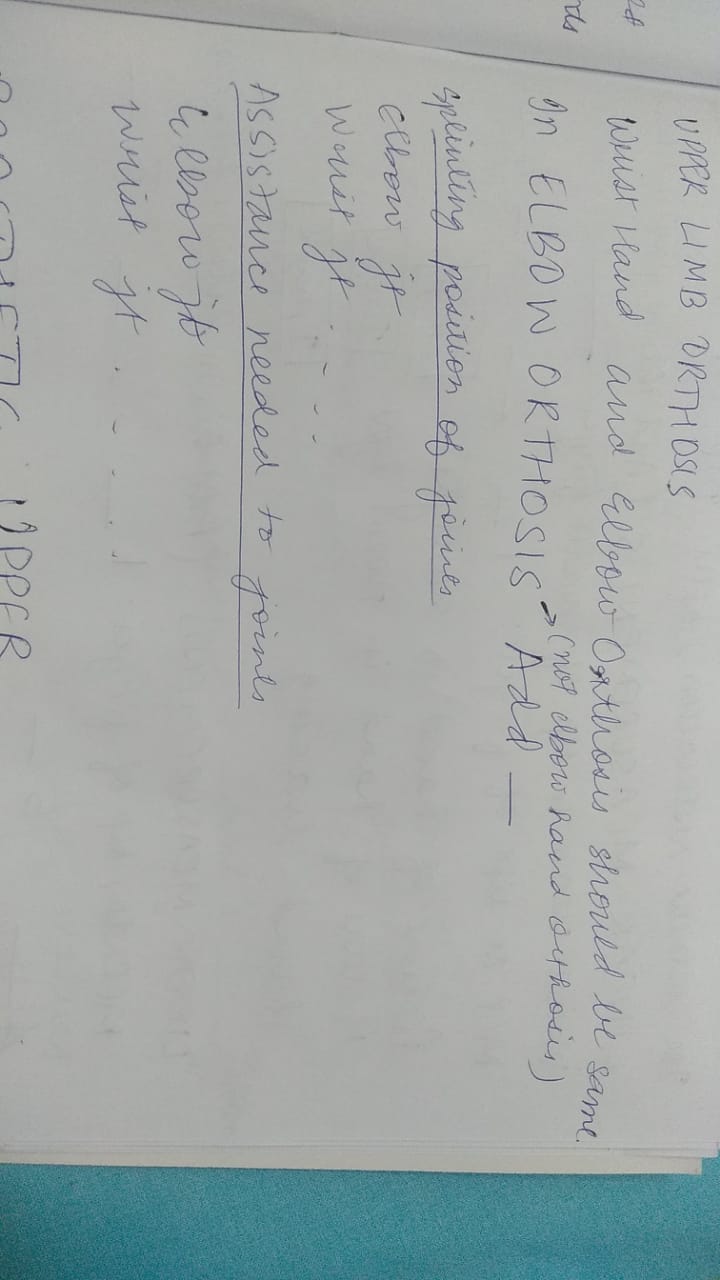 UPPER LIMB ORTHOSIS
Wrist Hand and Elbow Orthosis should be same.
In ELBOW ORTHOSIS → (not elbow hand orthosis)
Add —
Splinting position of joints
Elbow jt
Wrist jt . - - -
Assistance needed to joints
Elbow jt
Wrist jt . - - - .
UPPER